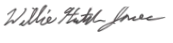 Willie Hutch Jones